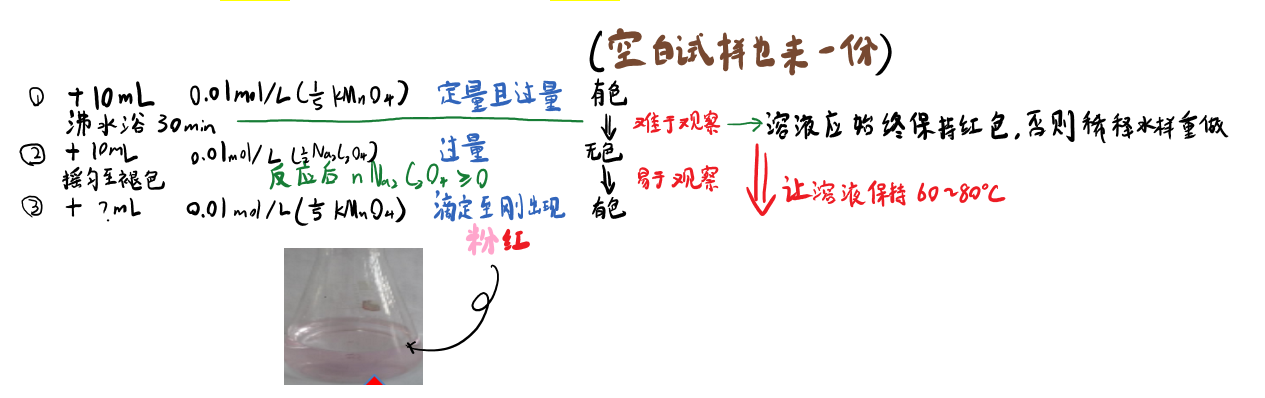 (空白试样也来一份)
① +10mL 0.01mol/L(⅕KMnO₄) 定量且过量 有色
沸水浴30min 难于观察 → 溶液应始终保持红色,否则稀释水样重做
② +10mL 0.01mol/L(½Na₂C₂O₄) 过量 无色
摇匀至褪色 反应后 n Na₂C₂O₄≥0 易于观察 让溶液保持60~80℃
③ + ?mL 0.01mol/L(⅕KMnO₄) 滴定至刚出现 有色
粉红